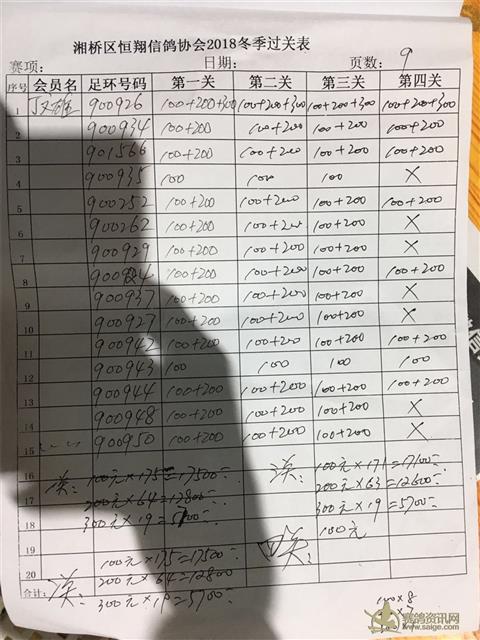 湘桥区恒翔信鸽协会2018冬季过关表
赛项: 日期: 页数: 9
序号 会员名 足环号码 第一关 第二关 第三关 第四关
1 900926 100+200+300 100+200+300 100+200+300 100+200+300
2 900934 100+200 100+200 100+200 100+200
3 901566 100+200 100+200 100+200 100+200
4 900935 100 100 100 X
5 900252 100+200 100+200 100+200 100+200
6 900262 100+200 100+200 100+200 X
7 900929 100+200 100+200 100+200 X
8 100+200 100+200 100+200 100+200
9 900937 100+200 100+200 100+200 X
10 900927 100+200 100+200 100+200 X
11 900942 100+200 100+200 100+200 100+200
12 900943 100 100 100 100
13 900944 100+200 100+200 100+200 100+200
14 900948 100+200 100+200 100+200 X
15 900950 100+200 100+200 100+200 X
16 100元×175=17500 100元×171=17100
17 200元×64=12800 200元×63=12600
18 300元×19=5700 300元×19=5700
19 100元×175=17500 四关: 100元
20 200元×64=12800
合计: 300元×19=5700
100×8
赛鸽资讯网
www.saige.com